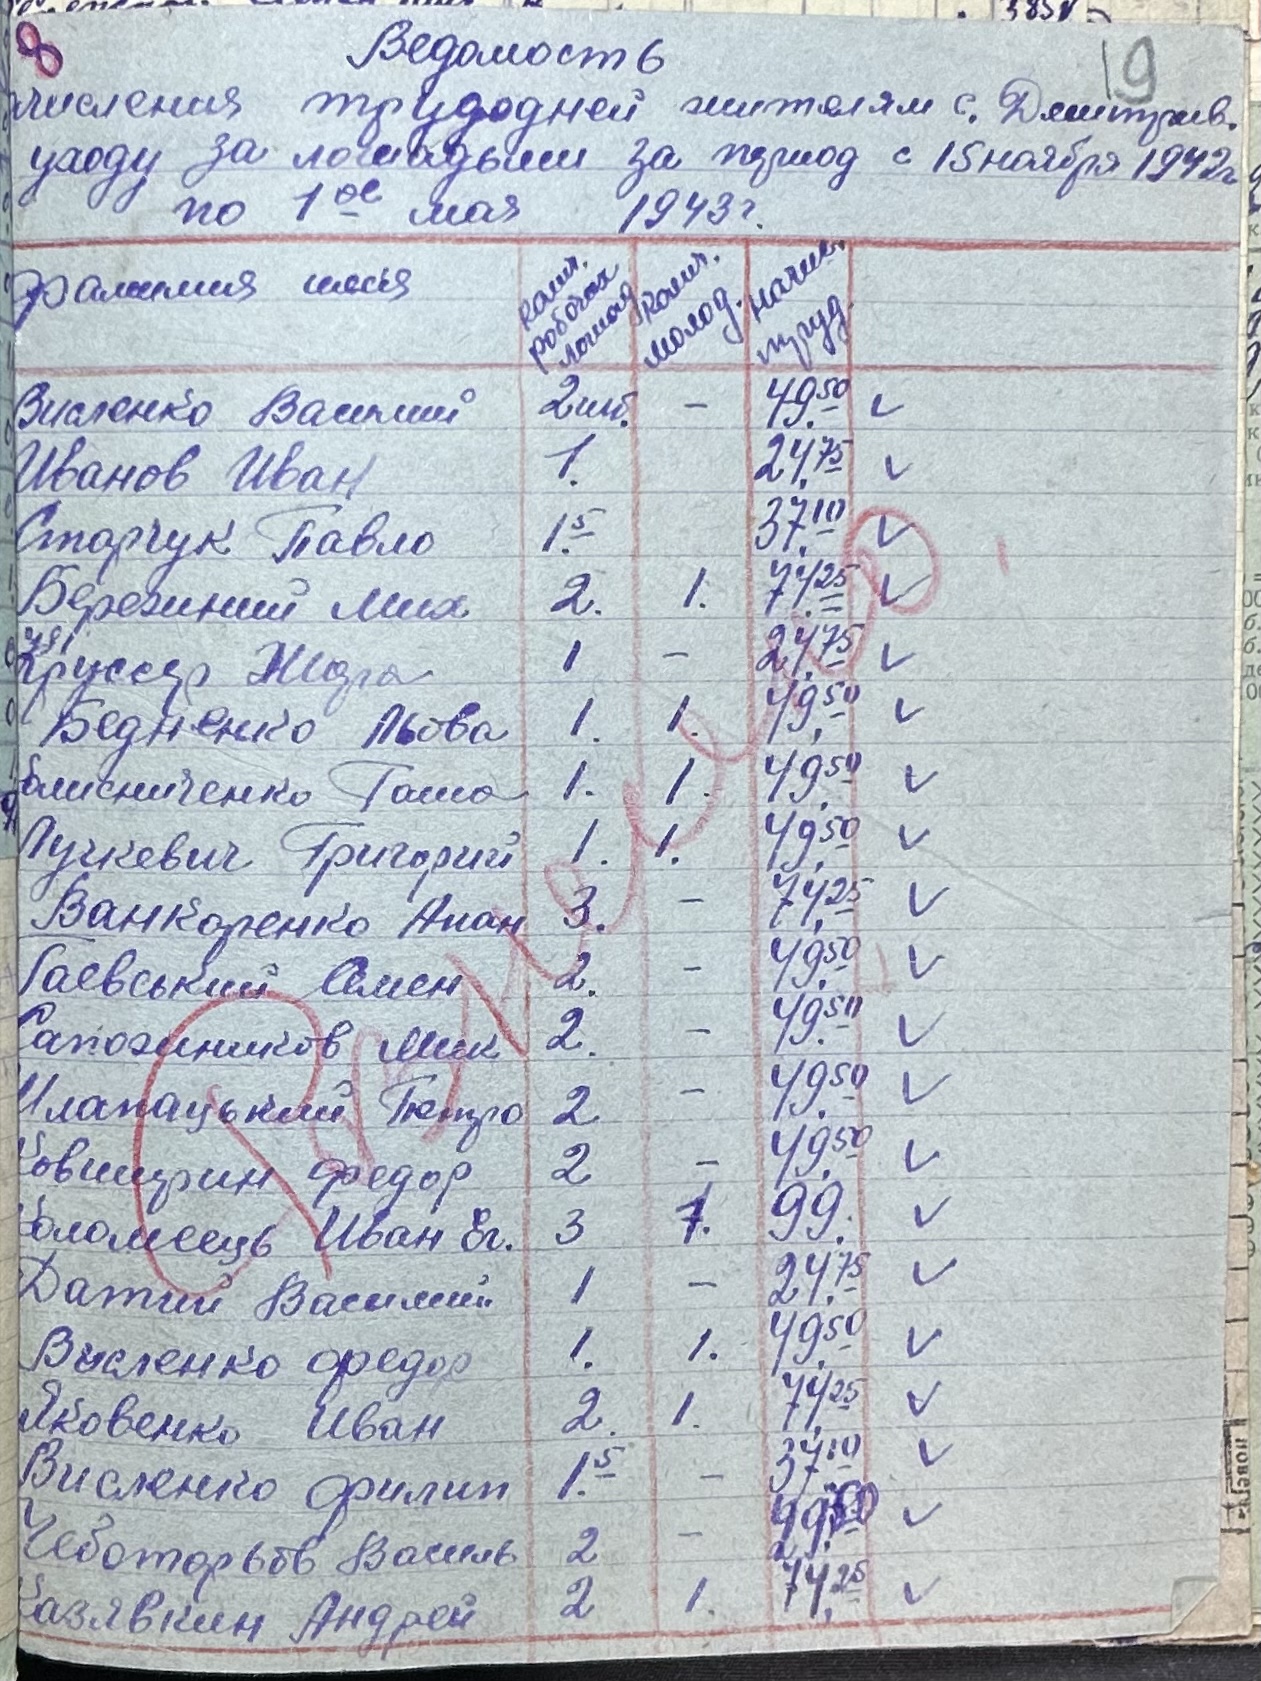 8
19
Ведомость
числения трудодней жителям с. Дмитрив.
уходу за лошадьми за период с 15 ноября 1942 г.
по 1ое мая 1943 г.
фамилия имья
колич. робочих лошад.
колич. молод.
начис. труд.
Висленко Василий 2 шт. - 49.50 ✓
Иванов Иван 1. 24.75 ✓
Старчук Павло 1.5 37.10 ✓
Бережний Мих 2. 1. 74.25 ✓
Жора 1 - 24.75 ✓
Бедненко Льова 1. 1. 49.50 ✓
1. 1. 49.50 ✓
Лучкевич Григорий 1. 1. 49.50 ✓
Ванкоренко Апан 3. - 74.25 ✓
Гаевський Семен 2. - 49.50 ✓
Сапожников Мик 2. - 49.50 ✓
Петро 2 - 49.50 ✓
Федор 2 - 49.50 ✓
Коломеець Иван Ег. 3 1. 99. ✓
Датий Василий 1 - 24.75 ✓
Висленко Федор 1. 1. 49.50 ✓
Яковенко Иван 2. 1. 74.25 ✓
Висленко Филип 1.5 - 37.10 ✓
Чеботорьов Василь 2 - 49.50 ✓
Казявкин Андрей 2 1. 74.25 ✓